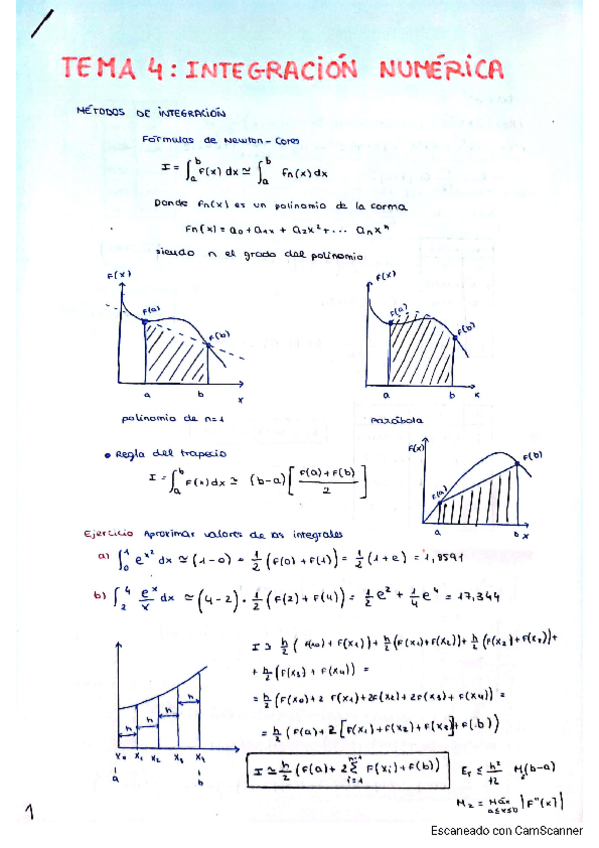 TEMA 4: INTEGRACIÓN NUMÉRICA
MÉTODOS DE INTEGRACIÓN
Fórmulas de Newton-Cores
I = ∫ₐᵇ F(x) dx ≃ ∫ₐᵇ Fn(x) dx
Donde Fn(x) es un polinomio de la corma
Fn(x) = a₀ + a₁x + a₂x² + ... aₙxⁿ
siendo n el grado del polinomio
F(x)
F(a)
F(b)
a b x
polinomio de n=1
F(x)
F(a)
F(b)
a b x
Parábola
• Regla del trapecio
I = ∫ₐᵇ F(x) dx ≃ (b-a) [ (F(a) + F(b)) / 2 ]
F(x)
F(b)
F(a)
a b x
Ejercicio Aproximar valores de las integrales
a) ∫₀¹ e^(x²) dx ≃ (1-0) · 1/2 (F(0) + F(1)) = 1/2 (1+e) = 1,8591
b) ∫₂⁴ eˣ/x dx ≃ (4-2) · 1/2 (F(2) + F(4)) = 1/2 e² + 1/4 e⁴ = 17,344
I ≃ h/2 (F(x₀) + F(x₁)) + h/2 (F(x₁) + F(x₂)) + h/2 (F(x₂) + F(x₃)) +
+ h/2 (F(x₃) + F(x₄)) =
= h/2 (F(x₀) + 2 F(x₁) + 2F(x₂) + 2F(x₃) + F(x₄)) =
= h/2 (F(a) + 2 [F(x₁) + F(x₂) + F(x₃)] + F(b))
h h h h
x₀ x₁ x₂ x₃ x₄
a b
I ≃ h/2 (F(a) + 2 Σᵢ₌₁ⁿ⁻¹ F(xᵢ) + F(b))
Eᵣ ≤ h²/12 M₂(b-a)
M₂ = Máx a≤x≤b |F''(x)|
1
Escaneado con CamScanner